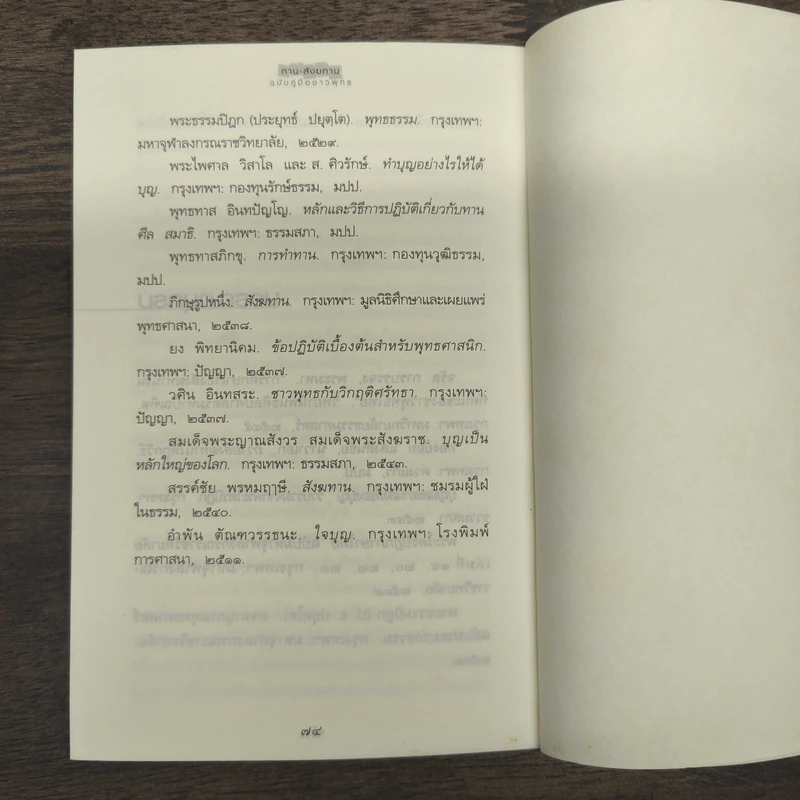 ทาน-สังฆทาน
ฉบับคู่มือชาวพุทธ
พระธรรมปิฎก (ประยุทธ์ ปยุตฺโต). พุทธธรรม. กรุงเทพฯ:
มหาจุฬาลงกรณราชวิทยาลัย, ๒๕๒๙.
พระไพศาล วิสาโล และ ส. ศิวรักษ์. ทำบุญอย่างไรให้ได้
บุญ. กรุงเทพฯ: กองทุนรักษ์ธรรม, มปป.
พุทธทาส อินทปัญโญ. หลักและวิธีการปฏิบัติเกี่ยวกับทาน
ศีล สมาธิ. กรุงเทพฯ: ธรรมสภา, มปป.
พุทธทาสภิกขุ. การทำทาน. กรุงเทพฯ: กองทุนวุฒิธรรม,
มปป.
ภิกษุรูปหนึ่ง. สังฆทาน. กรุงเทพฯ: มูลนิธิศึกษาและเผยแพร่
พุทธศาสนา, ๒๕๓๘.
ยง พิทยานิคม. ข้อปฏิบัติเบื้องต้นสำหรับพุทธศาสนิก.
กรุงเทพฯ: ปัญญา, ๒๕๓๗.
วศิน อินทสระ. ชาวพุทธกับวิกฤติศรัทธา. กรุงเทพฯ:
ปัญญา, ๒๕๓๗.
สมเด็จพระญาณสังวร สมเด็จพระสังฆราช. บุญเป็น
หลักใหญ่ของโลก. กรุงเทพฯ: ธรรมสภา, ๒๕๔๓.
สรรค์ชัย พรหมฤๅษี. สังฆทาน. กรุงเทพฯ: ชมรมผู้ใฝ่
ในธรรม, ๒๕๔๐.
อำพัน ตัณฑวรรธนะ. ใจบุญ. กรุงเทพฯ: โรงพิมพ์
การศาสนา, ๒๕๑๑.
๗๔